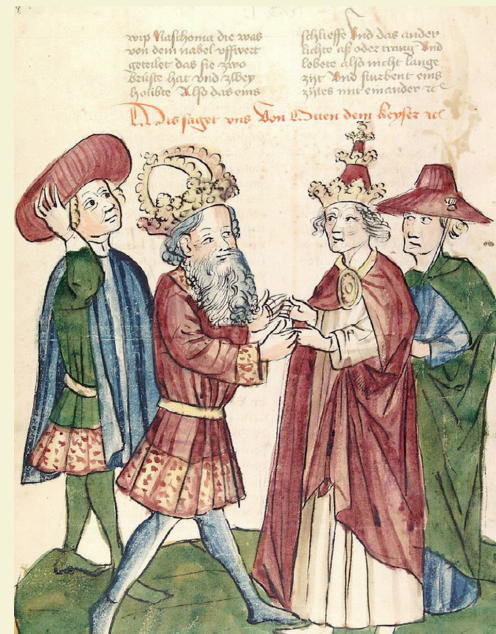 wip Naschoma die was
von dem nabel uffwert
geteilet das sie zwo
brüste hat vnd zwey
hölibte Also das eins
schlieffe vnd das ander
lachte aß oder trang vnd
lobete also nicht lange
zijt vnd sturbent eins
zijtes mit einander ꝛc
Dis saget vns von Otten dem keyser ꝛc